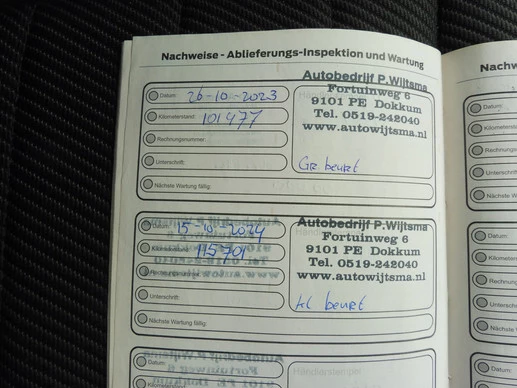 Nachweise - Ablieferungs-Inspektion und Wartung
Datum: 26-10-2023
Kilometerstand: 101477
Rechnungsnummer:
Unterschrift:
Nächste Wartung fällig:
Autobedrijf P.Wijtsma
Fortuinweg 6
9101 PE Dokkum
Tel. 0519-242040
www.autowijtsma.nl
Gr beurt
Datum: 15-10-2024
Kilometerstand: 115701
Rechnungsnummer:
Unterschrift
Nächste Wartung fällig:
Autobedrijf P.Wijtsma
Fortuinweg 6
9101 PE Dokkum
Tel. 0519-242040
www.autowijtsma.nl
kl beurt
Datum:
Kilometerstand:
Händlerstempel
Nachw
Datum:
Kilometerstand:
Rechnungsnummer
Unterschrift:
Nächste
Datum:
Kilometer
Rechnungs
Unterschrift:
Nächste
Datum:
Kilometerstand